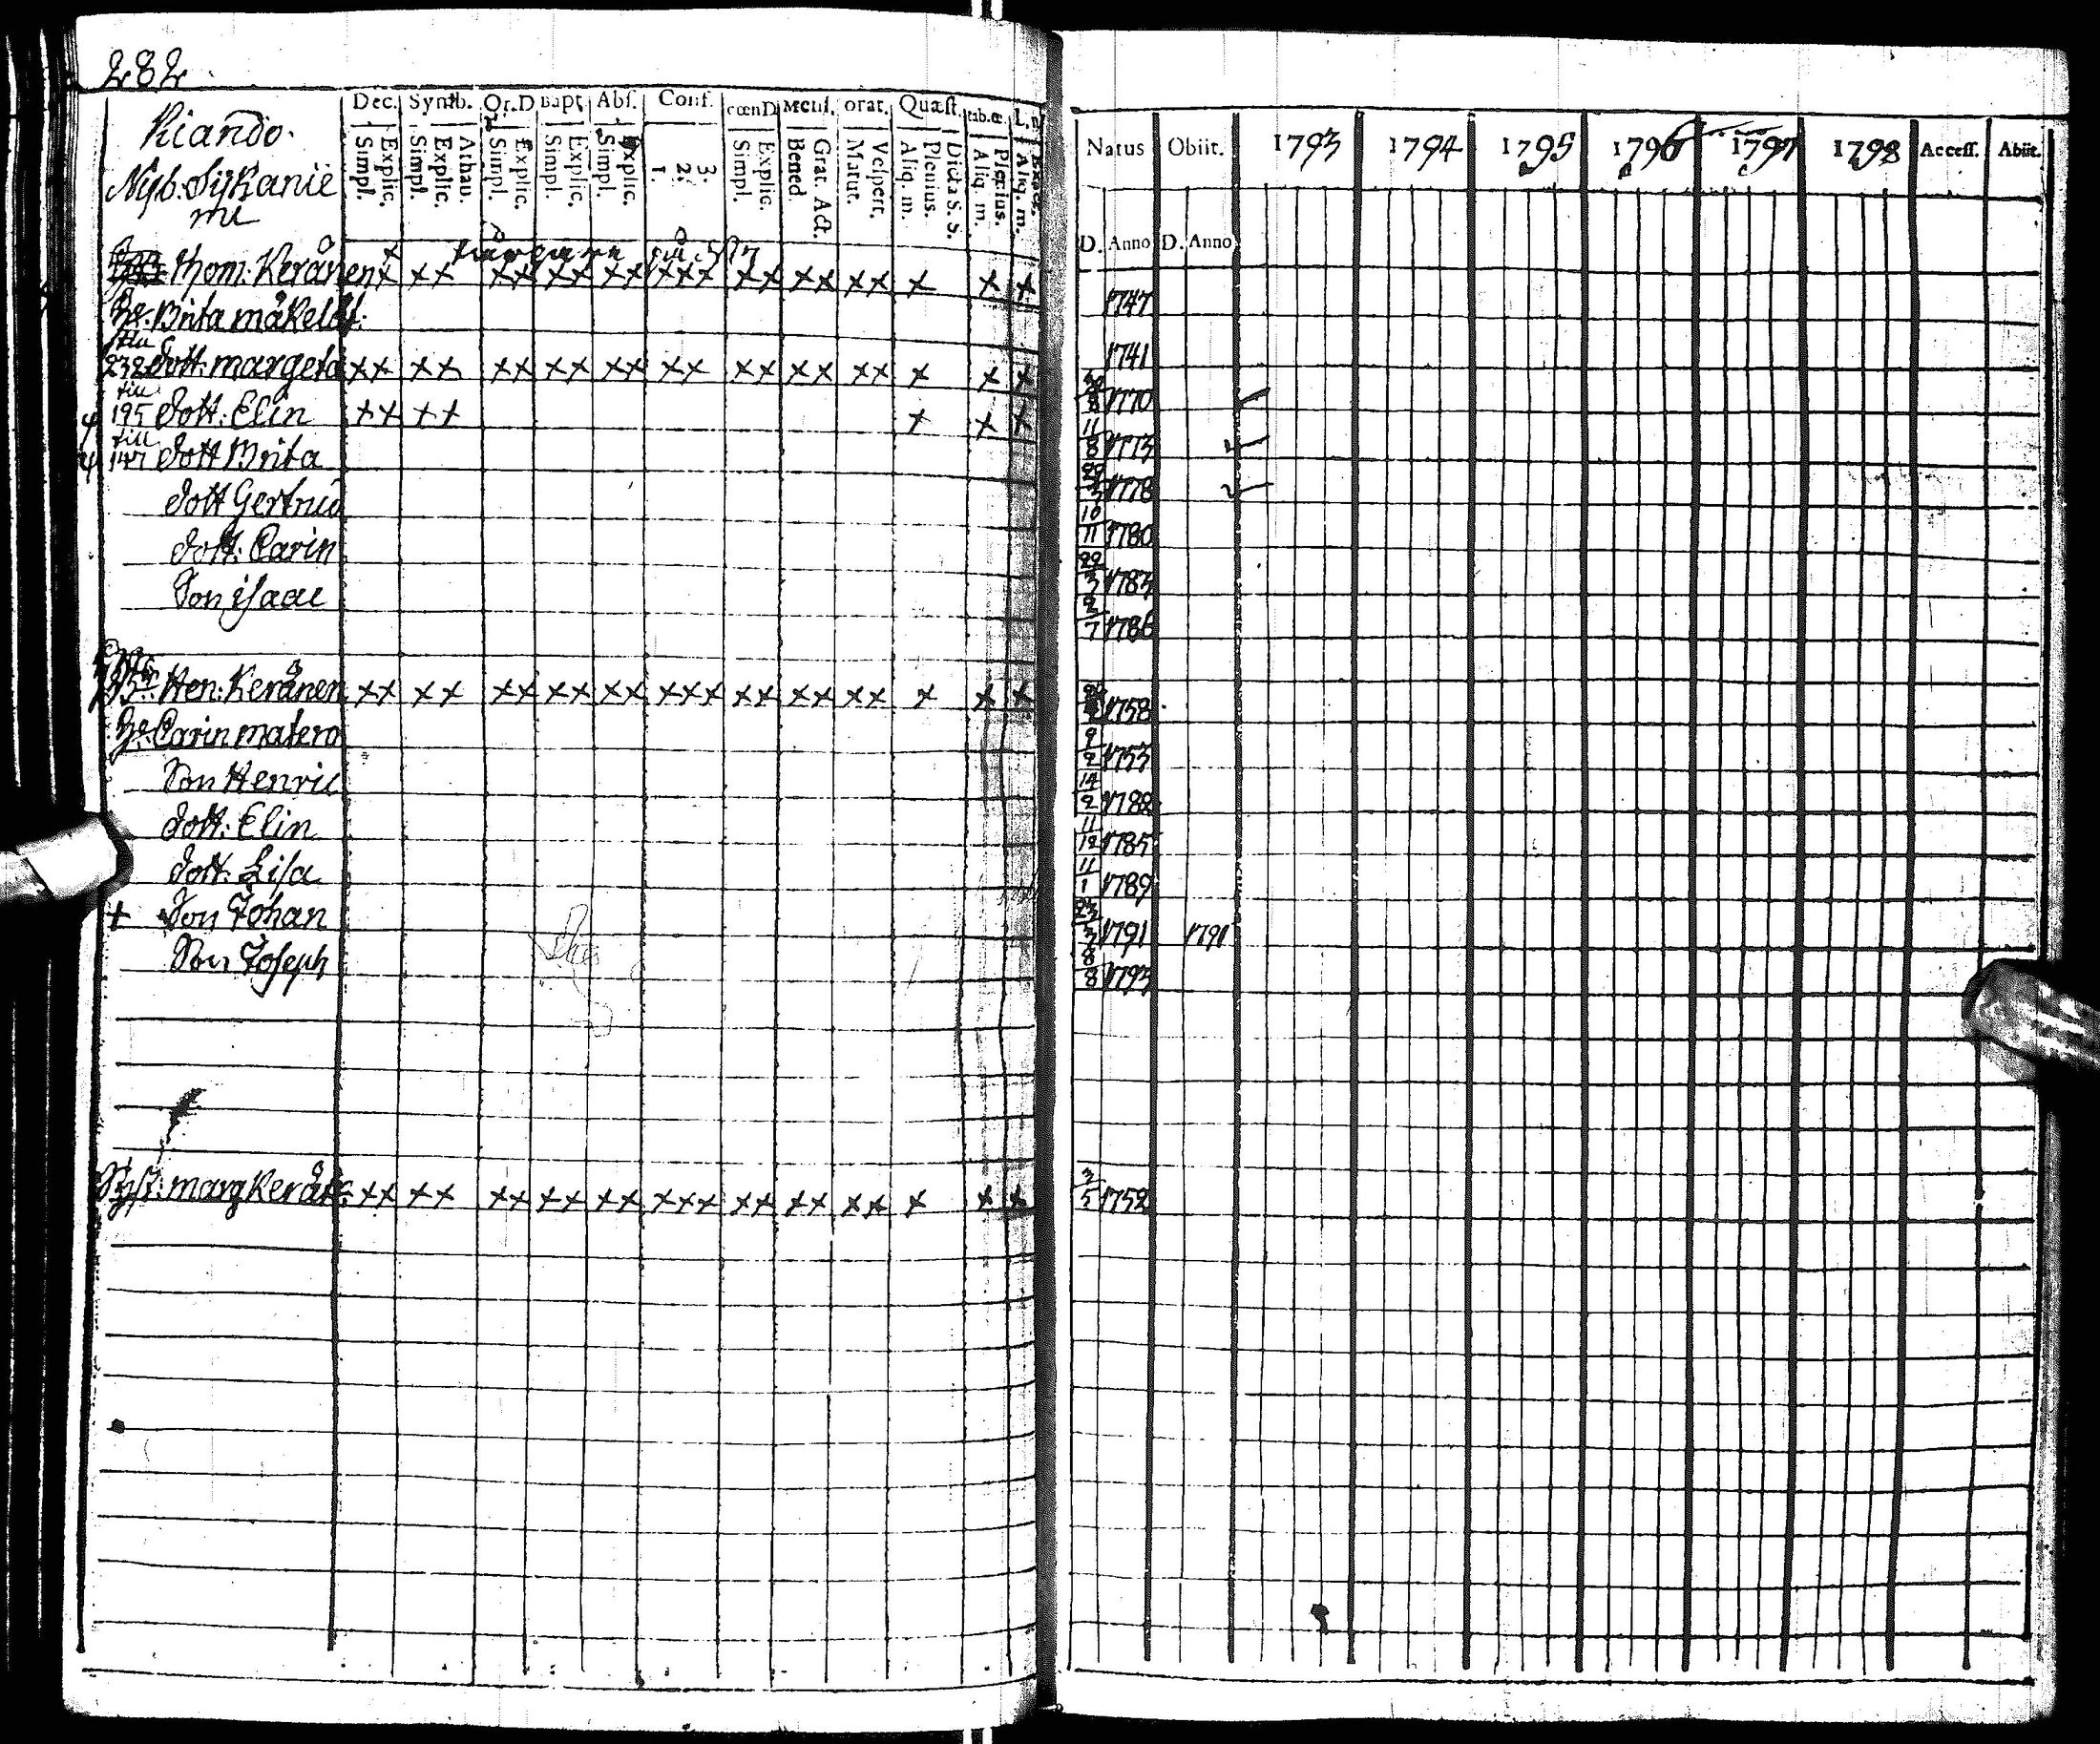 282
Dec. Symb. Or.D Bapt. Abs. Conf. cœnD Mens. orat. Quæst. tab.œ. L.n
Kiando.
Nyb. Sijkanie
mi
Simpl. Explic. Simpl. Explic. Athan. Simpl. Explic. Simpl. Explic. Simpl. Explic. 1. 2. 3. Simpl. Explic. Bened. Grat. Act. Matut. Vespert. Aliq. m. Plenius. Dicta S. S. Aliq. m. Plenius. Aliq. m. Exact.
Thom: Keränen x x x x x x x x x x x x x x x x x x x x x x
Hu. Brita mäkelä
till
232 dott. margeta x x x x x x x x x x x x x x x x x x x x x
till
195 dott: Elin x x x x x x x
till
147 dott Brita
dott Gertrud
dott: Carin
Son isaac
Hen: Keränen x x x x x x x x x x x x x x x x x x x x x x
Hu. Carin matero
Son Henric
dott: Elin
dott: Lisa
+ Son Johan
Son Joseph
Syst: marg Kerän: x x x x x x x x x x x x x x x x x x x x x x
Natus Obiit. 1793 1794 1795 1796 1797 1798 Access. Abiit.
D. Anno D. Anno
1747
1741
8 1770
11/8 1773
1778
10/11 1780
22/3 1783
2/7 1786
1758
9/2 1753
14/2 1788
11/12 1785
11/1 1789
23/3 1791 1791
8/8 1793
3/5 1752